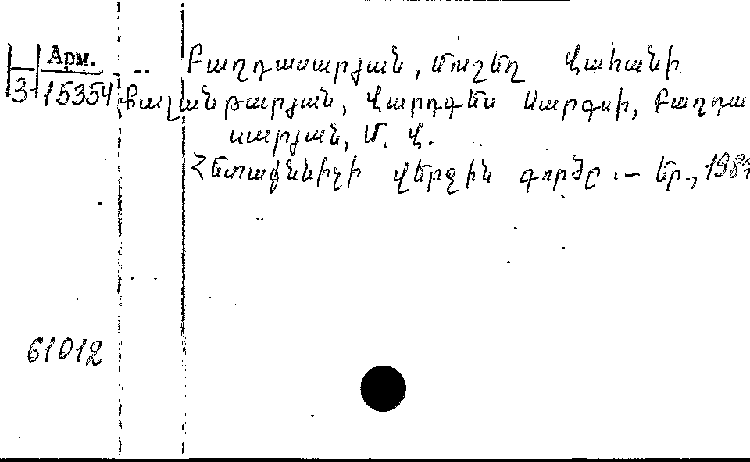 Арм.
3-15354
Բաղդասարյան, Մուշեղ Վահանի
Քալանթարյան, Վարդգես Սարգսի, Բաղդա
սարյան, Մ. Վ.
Հետաքննիչի վերջին գործը.– Եր.,
61012